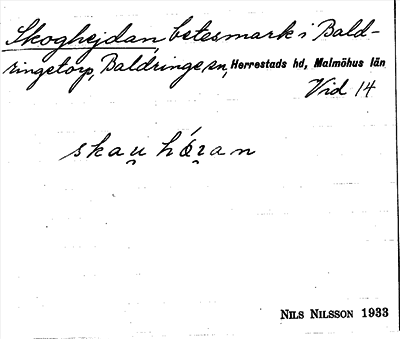 Skoghejdan, betesmark i Bald-
ringetorp, Baldringe sn, Herrestads hd, Malmöhus län
Vid 14
skau̯ hǿɀan
NILS NILSSON 1933